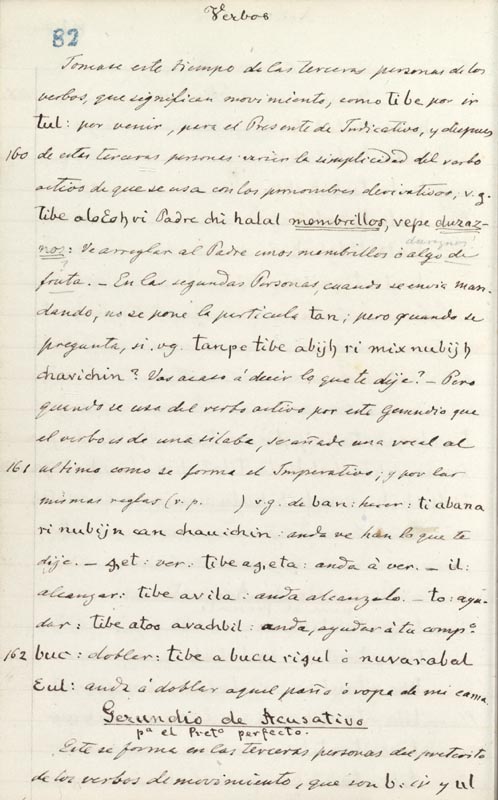 Verbos
82
Tomase este tiempo de las terceras personas de los
verbos, que significan movimiento, como tibe por ir
tul: por venir, para el Presente de Indicativo, y despues
160 de estas terceras personas varia la simplicidad del verbo
activo de que se usa con los pronombres derivativos, v.g.
tibe aloEoh vi Padre chi halal membrillos, vepe duraz-
nos: Ve a reglar al Padre unos membrillos ó algo de
duraznos
fruta. — En las segundas Personas, cuando se envia man-
dando, no se pone la particula tan; pero quando se
pregunta, si. vg. tanpe tibe abijh ri mix nubijh
chavichin? Vas acaso á decir lo que te dije? — Pero
quando se usa del verbo activo por este Gerundio que
el verbo es de una silaba, se añade una vocal al
161 ultimo como se forma el Imperativo; y por las
mismas reglas (v. p. ) v.g. de ban: hacer: ti abana
ri nubijn can chauichin: anda ve han lo que te
dije. — get: ver: tibe ageta: anda á ver. — il:
alcanzar: tibe avila: anda alcanzalo. — to: ayu-
dar: tibe atoo avachbil: anda, ayudar á tu compo.
162 buc: doblar: tibe abucu rigul ó nuvarabal
Eul: anda á doblar aquel paño ó ropa de mi cama.
Gerundio de Acusativo
pa el Preto perfecto.
Este se forma en las terceras personas del preterito
de los verbos de movimiento, que son b: ir y ul